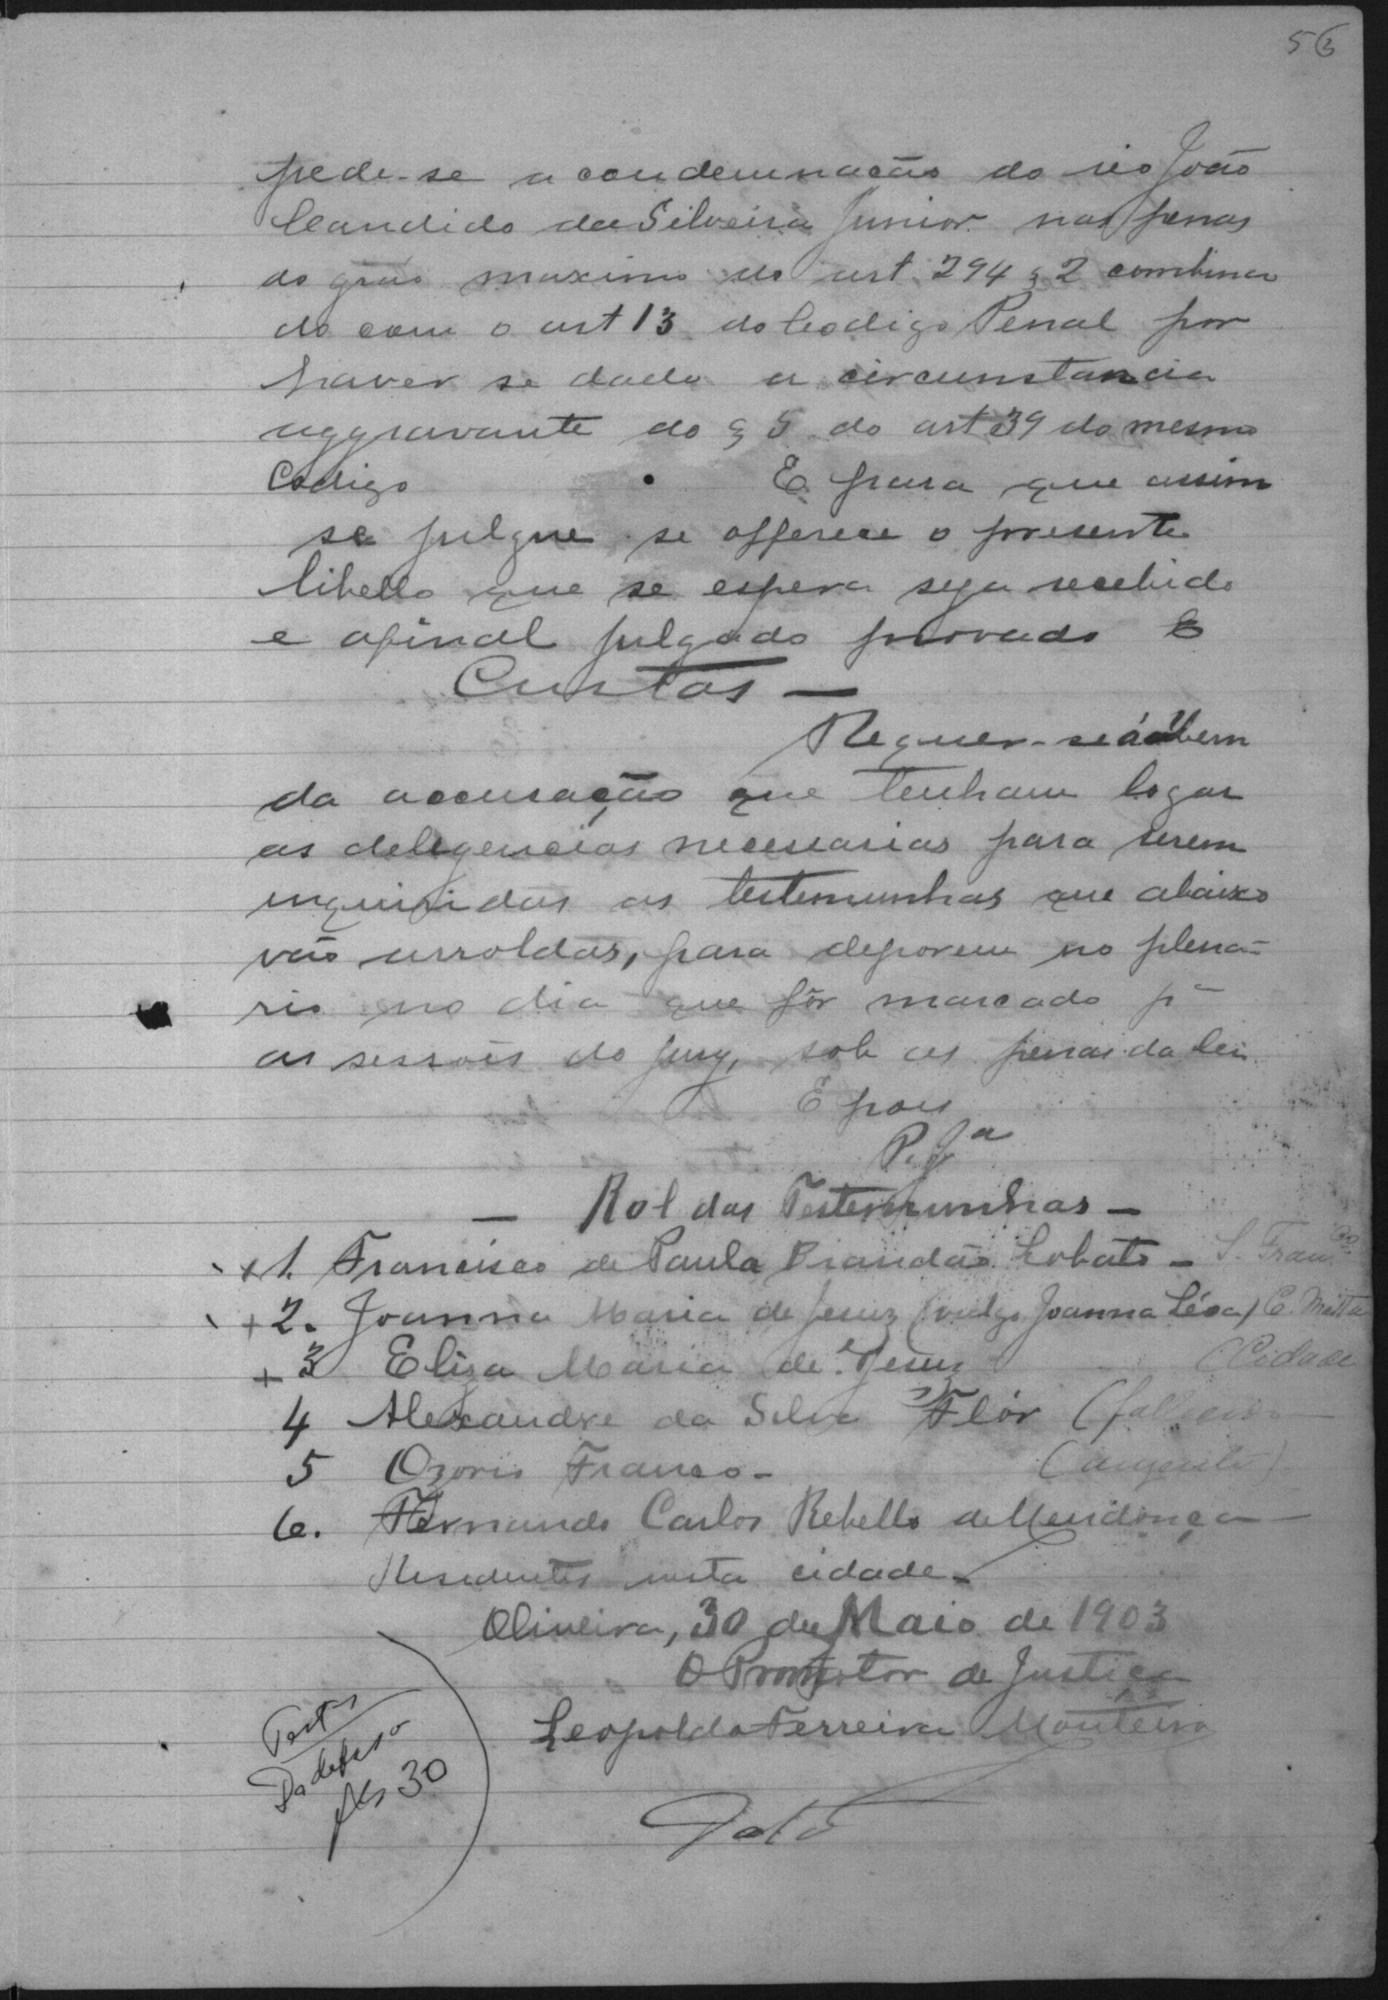 53
pede-se a condemnação do réo João
Candido da Silveira Junior nas penas
do gráo maximo do art. 294 § 2 combina
do com o art 13 do Codigo Penal por
haver se dado a circunstancia
aggravante do § 5 do art 39 do mesmo
Codigo . E para que assim
se julgue se offerece o presente
libello que se espera seja recebido
e afinal julgado provado E
Custas —
Requer-se a bem
da accusação que tenham logar
as deligencias necessarias para serem
inquiridas as testemunhas que abaixo
vão arroldas, para deporem no plena-
rio no dia que fôr marcado pª
as sessões do jury, sob as penas da lei
E pois
P. Jª
— Rol das Testemunhas —
+ 1. Francisco de Paula Brandão Lobato — S. Franco
+ 2. Joanna Maria de Jesuz (vulgo Joanna Léoa) C. Matta
+ 3 Eliza Maria de Jesuz (Cidade
4 Alexandre da Silva Flôr (fallecido
5 Ozorio Franco - (ausente)
6. Fernando Carlos Rebello de Mendonça —
Residentes nesta cidade -
Oliveira, 30 de Maio de 1903
O Promotor de Justiça
Leopoldo Ferreira Monteiro
Data
Testas
Da defesa
fls 30